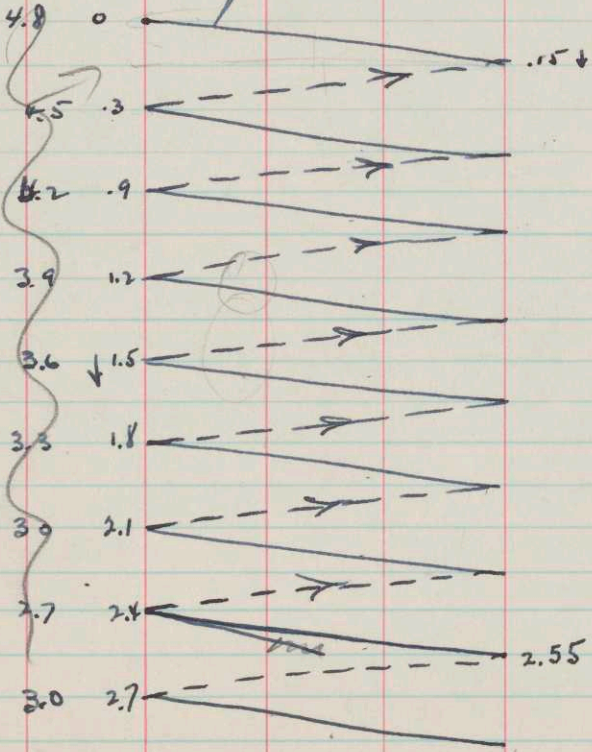 4.8 0
.15 ↓
4.5 .3
4.2 .9
3.9 1.2
3.6 ↓ 1.5
3.3 1.8
3.0 2.1
2.7 2.4
2.55
3.0 2.7